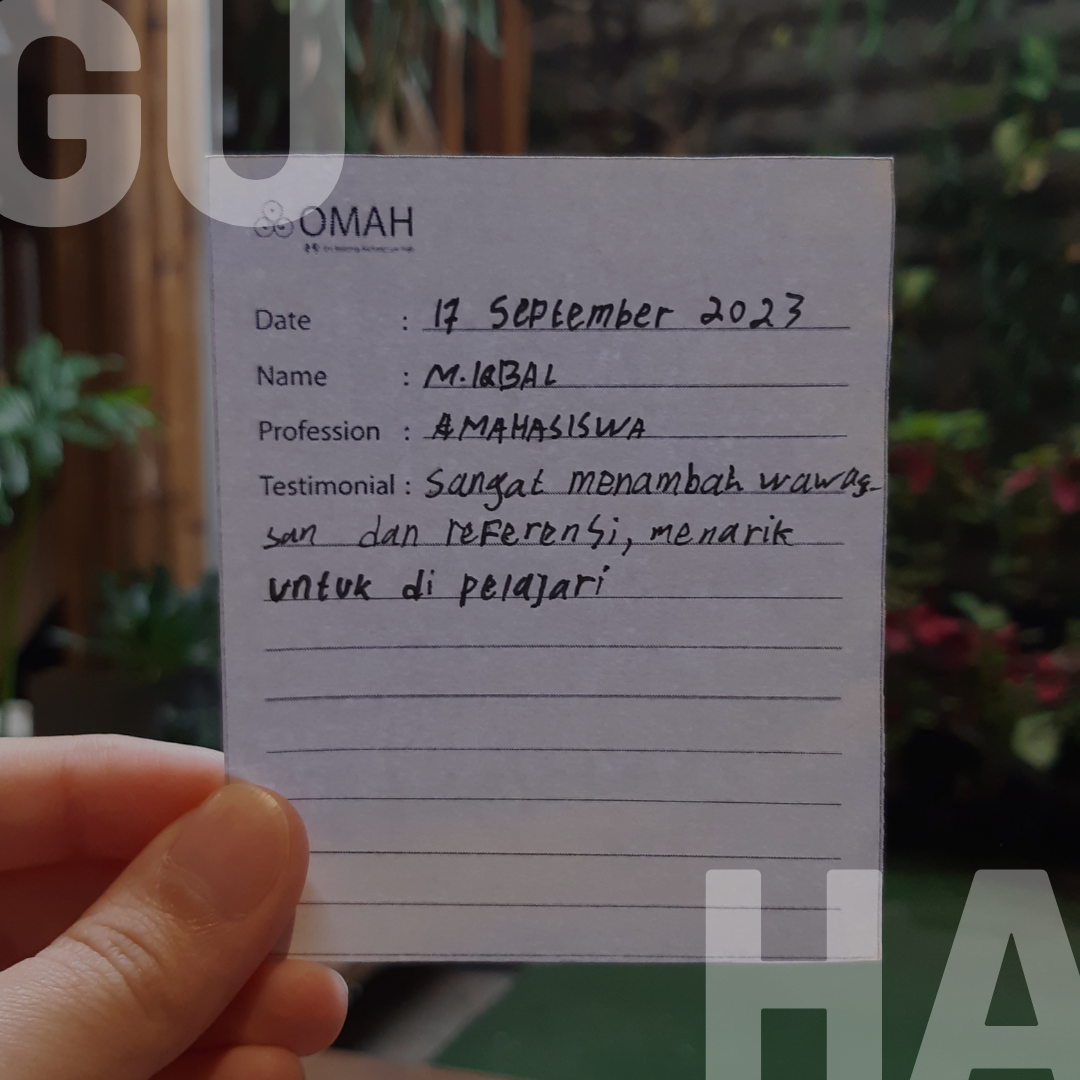 GU
OMAH
Date : 17 September 2023
Name : M. IQBAL
Profession : MAHASISWA
Testimonial : Sangat menambah wawa-
san dan referensi, menarik
untuk di pelajari
HA